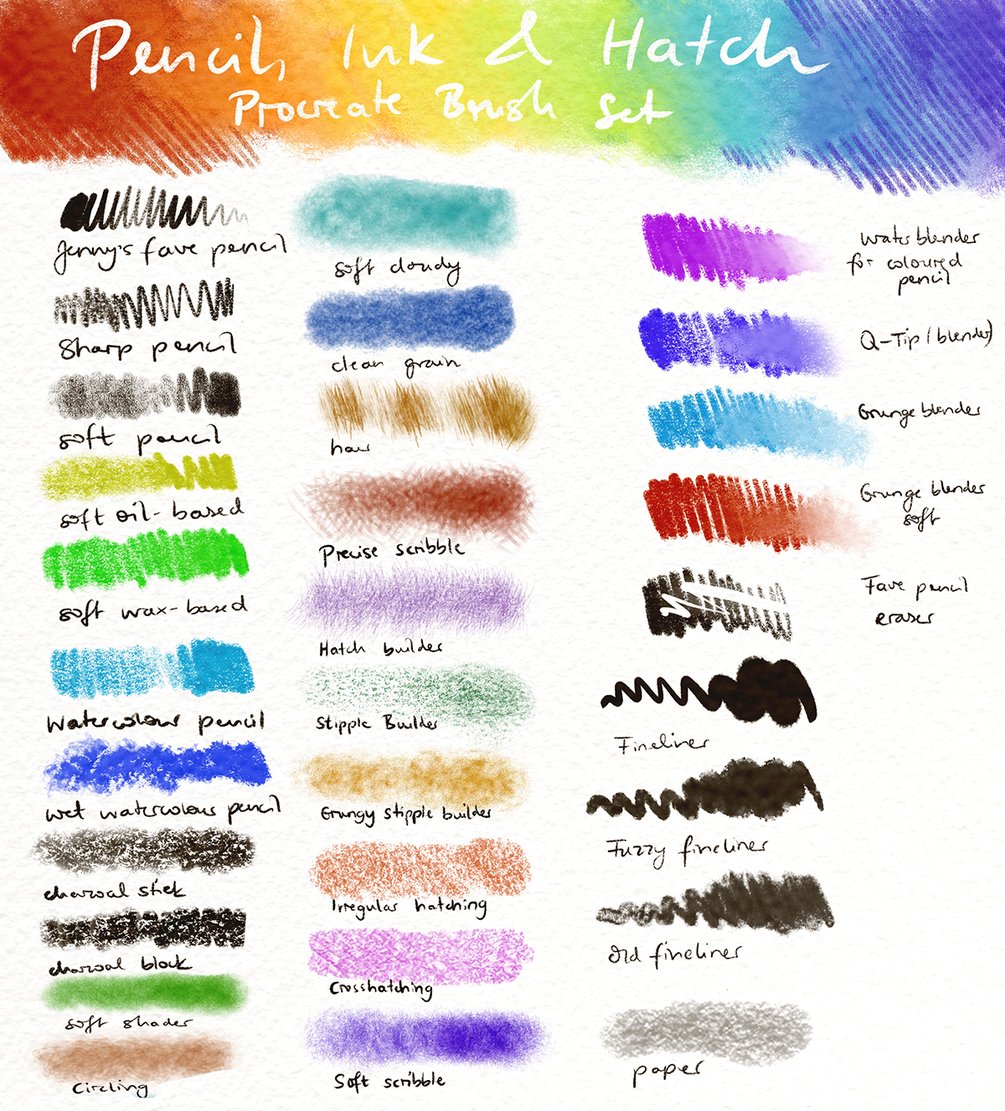 Pencil, Ink & Hatch
Procreate Brush Set
Jenny's fave pencil
Sharp pencil
soft pencil
soft oil-based
soft wax-based
watercolour pencil
wet watercolour pencil
charcoal stick
charcoal block
soft shader
Circling
soft cloudy
clean grain
hair
Precise scribble
Hatch builder
Stipple Builder
Grungy stipple builder
Irregular hatching
Crosshatching
Soft scribble
Water blender
for coloured
pencil
Q-Tip (blender)
Grunge blender
Grunge blender
soft
Fave pencil
eraser
Fineliner
Fuzzy fineliner
Old fineliner
paper